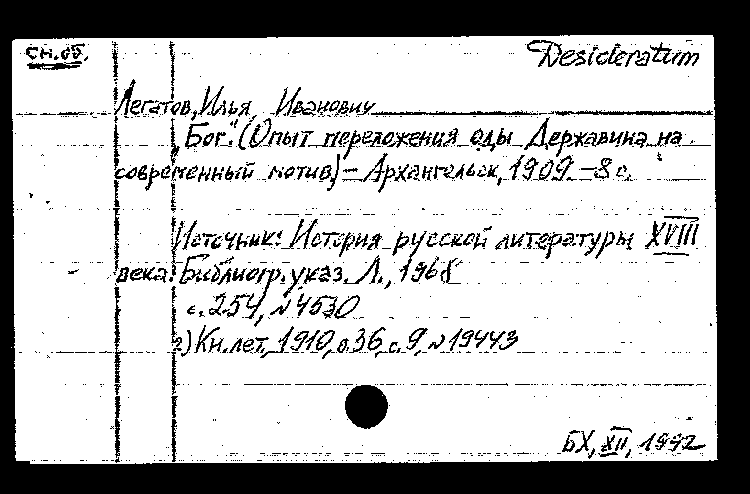 сн.об. Desideratum
Легатов, Илья Иванович
„Бог". (Опыт переложения оды Державина на
современный мотив) – Архангельск, 1909. – 8 с.
Источник: История русской литературы XVIII
века. Библиогр. указ. Л., 1968
с. 254, № 4530
2) Кн. лет., 1910, в. 36, с. 9, № 19443
БХ, XII, 1992